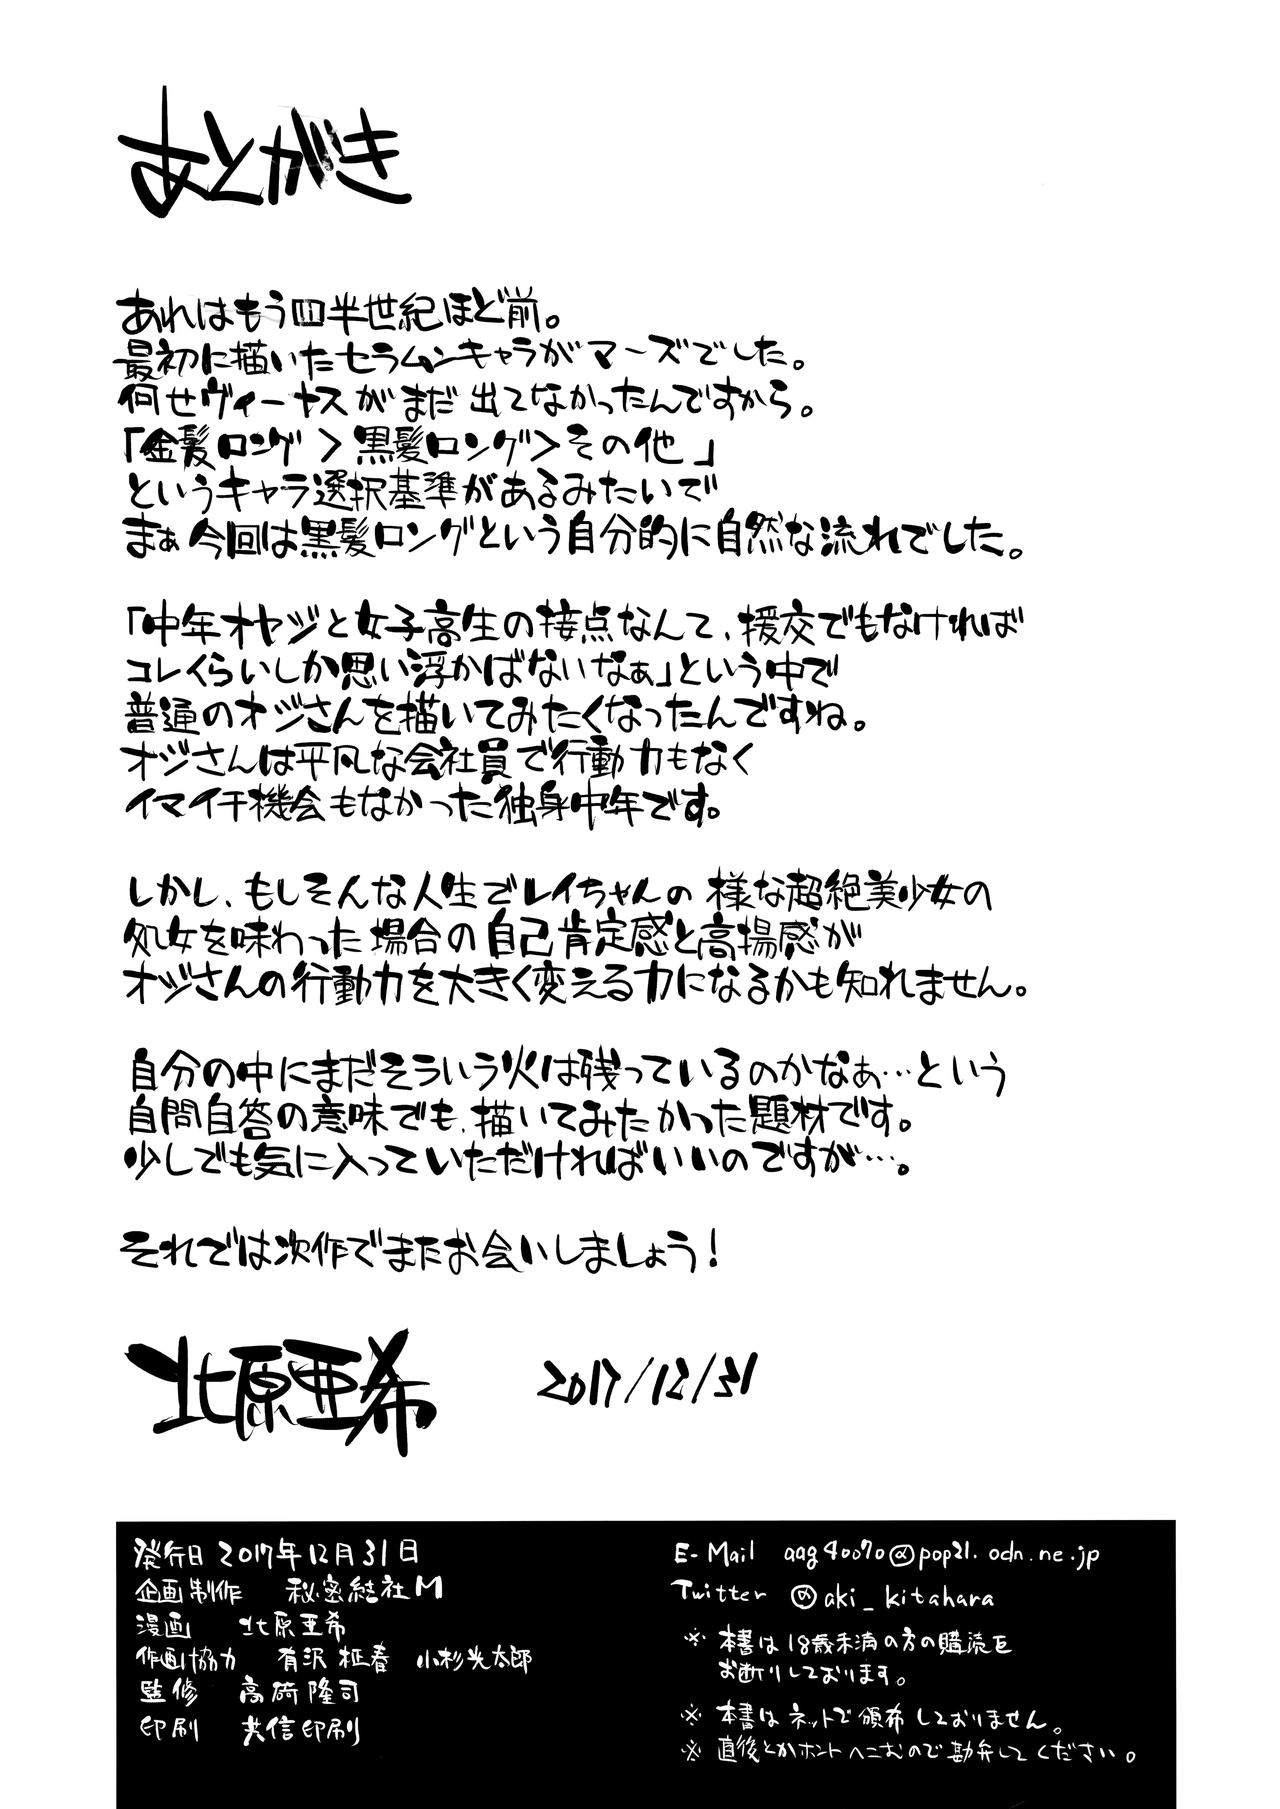 あとがき
あれはもう四半世紀ほど前。
最初に描いたセラムンキャラがマーズでした。
何せヴィーナスがまだ出てなかったんですから。
「金髪ロング>黒髪ロング>その他」
というキャラ選択基準があるみたいで
まぁ今回は黒髪ロングという自分的に自然な流れでした。
「中年オヤジと女子高生の接点なんて、援交でもなければ
コレくらいしか思い浮かばないなぁ」という中で
普通のオジさんを描いてみたくなったんですね。
オジさんは平凡な会社員で行動力もなく
イマイチ機会もなかった独身中年です。
しかし、もしそんな人生でレイちゃんの様な超絶美少女の
処女を味わった場合の自己肯定感と高揚感が
オジさんの行動力を大きく変える力になるかも知れません。
自分の中にまだそういう火は残っているのかなぁ…という
自問自答の意味でも、描いてみたかった題材です。
少しでも気に入っていただければいいのですが…。
それでは次作でまたお会いしましょう!
北原亜希 2017/12/31
発行日 2017年12月31日
企画制作 秘密結社M
漫画 北原亜希
作画協力 有沢 柾春 小杉光太郎
監修 高崎隆司
印刷 共信印刷
E-Mail aag40070@pop21.odn.ne.jp
Twitter @aki_kitahara
※ 本書は18歳未満の方の購読を
お断りしております。
※ 本書はネットで頒布しておりません。
※ 直後とかホントヘコむので勘弁してください。